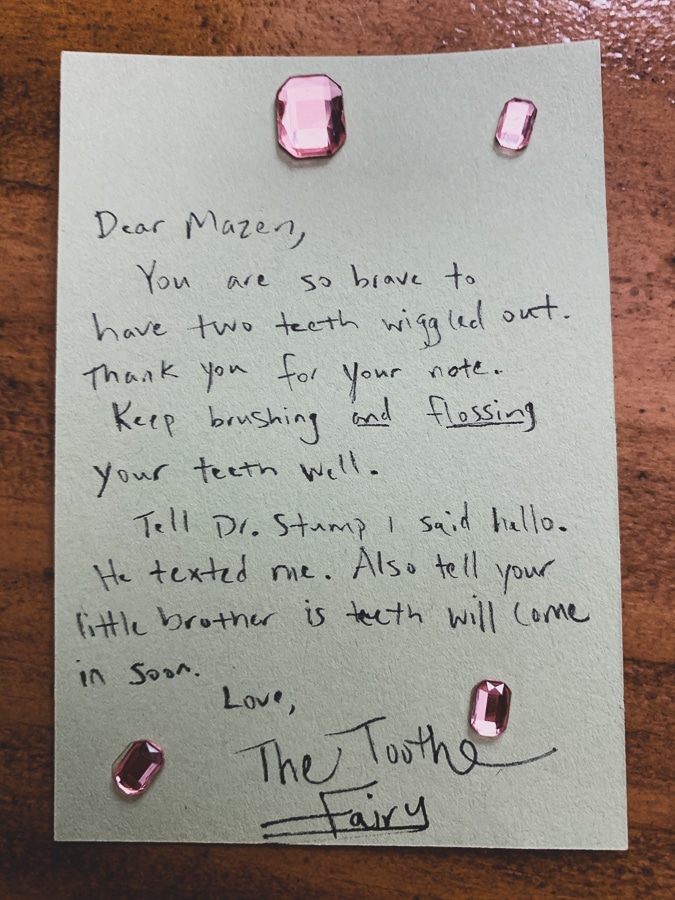 Dear Mazen,
You are so brave to
have two teeth wiggled out.
Thank you for your note.
Keep brushing and flossing
your teeth well.
Tell Dr. Stump I said hello.
He texted me. Also tell your
little brother is teeth will come
in soon.
Love,
The Toothe
Fairy